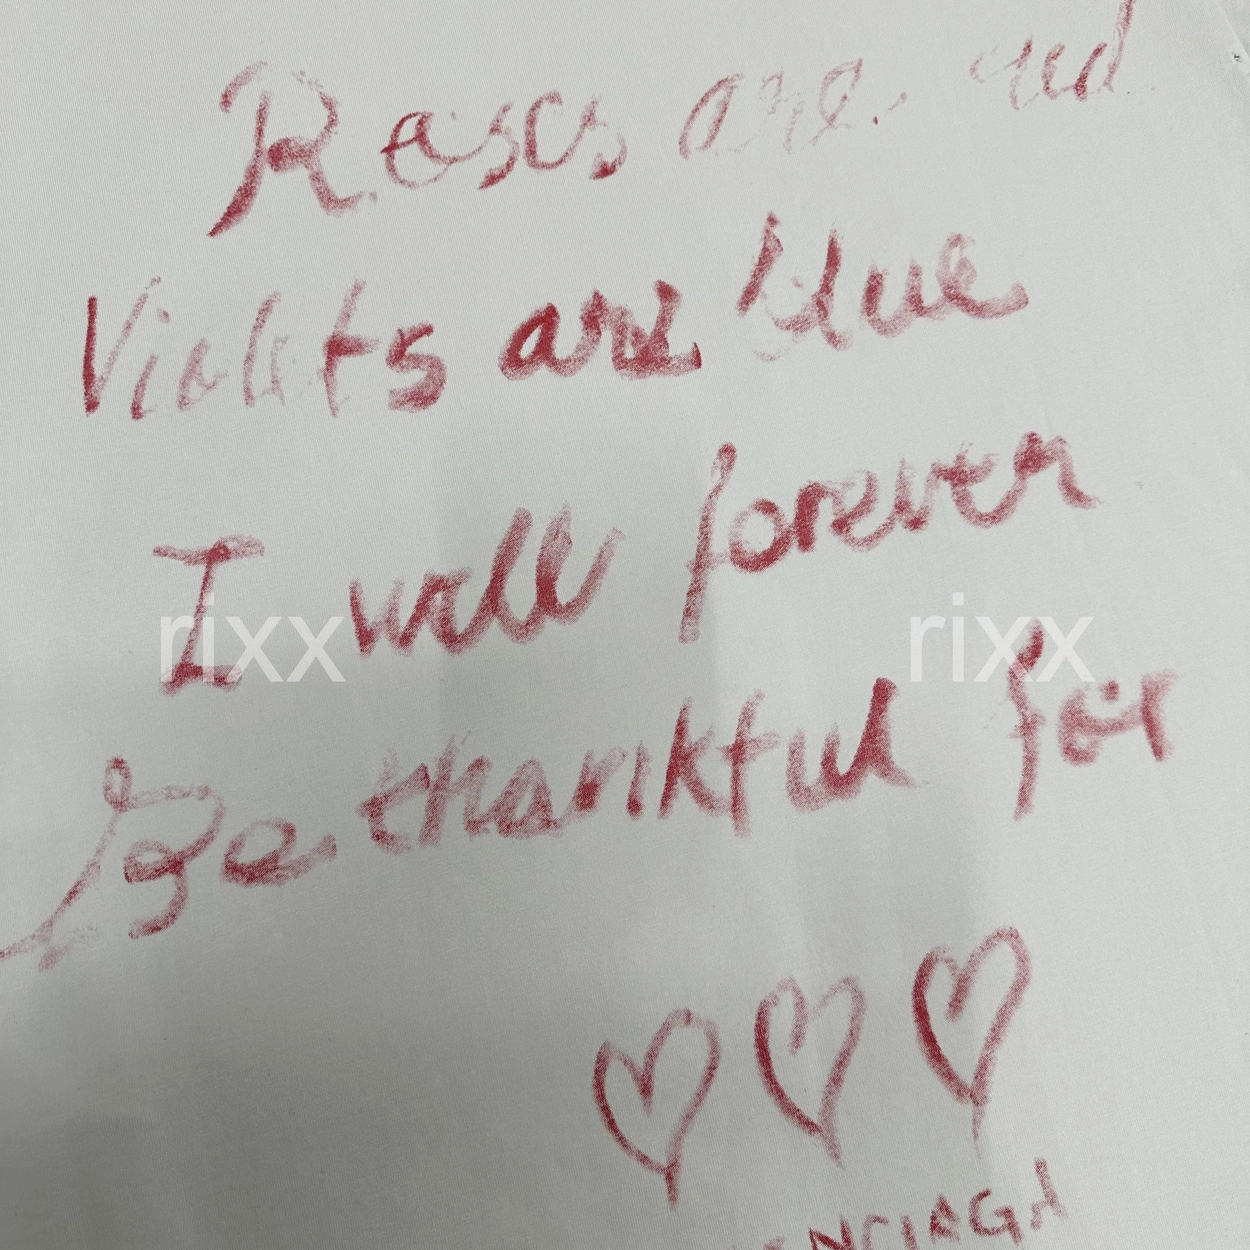 Roses are red
Violets are blue
I will forever
rixx rixx
Be thankful for